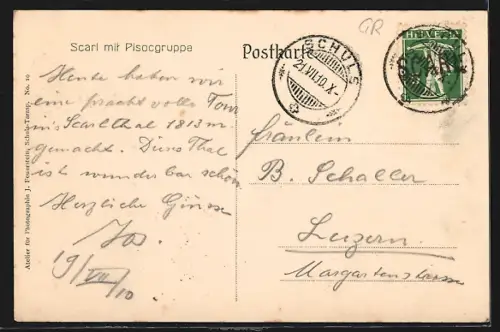 Scarl mit Pisocgruppe
Postkarte
GR
SCHULS
21.VII.10.X-
HELVETIA
SCARL
Heute haben wir
eine prachtvolle Tour
ins Scarlthal 1813 m
gemacht. Dieses Thal
ist wunderbar schön
Herzliche Grüsse
Jos.
19/VII/10
Fräulein
B. Schaller
Luzern.
Atelier für Photographie J. Feuerstein, Schuls-Tarasp. No. 10